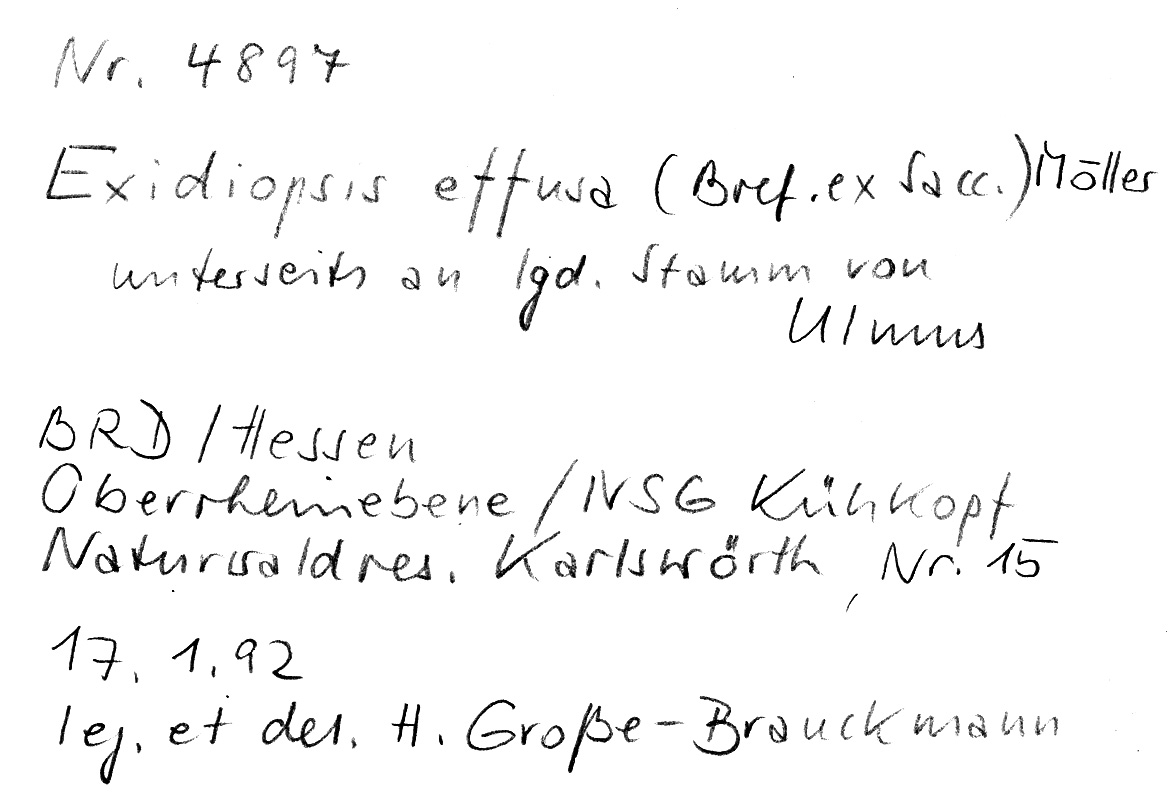 Nr. 4897
Exidiopsis effusa (Bref. ex Sacc.) Möller
unterseits an lgd. Stamm von
Ulmus
BRD / Hessen
Oberrheinebene / NSG Kühkopf
Naturwaldres. Karlswörth, Nr. 15
17. 1. 92
leg. et det. H. Große-Brauckmann